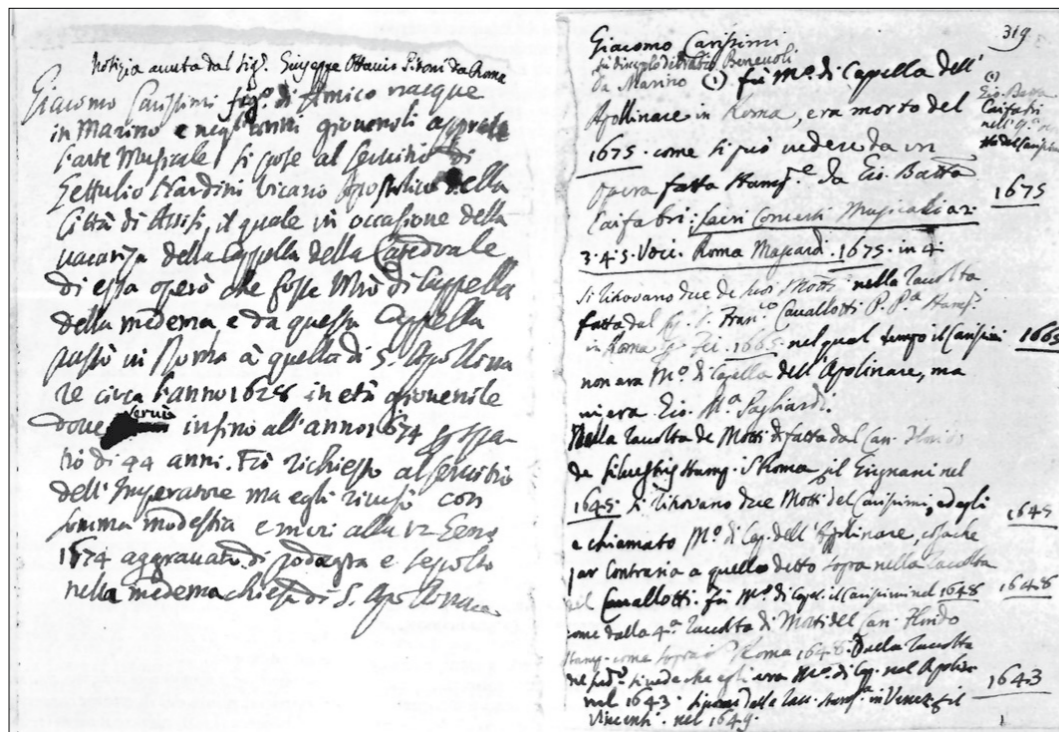 Notizia avuta dal Sigr. Giuseppe Ottavio Pitoni da Roma
Giacomo Carissimi figo. di Amico nacque
in Marino e negl'anni giovenili apprese
l'arte Musicale si pose al servitio di
Tettulio Nardini Vicario Apostolico della
Città di Assisi, il quale in occasione della
vacanza della Cappella della Catedrale
di essa operò che fosse Mrò di Cappella
della medema, e da questa Cappella
passò in Roma à quella di S. Apollina
re circa l'anno 1628 in età giovenile
dove servì infino all'anno 1674
di 44 anni. Fù richiesto al servitio
dell'Imperatore ma egli ricusò con
somma modestia e morì alli 12 Genro
1674 aggravato di podagra e sepolto
nella medema chiesa di S. Apollinare
319
Giacomo Carissimi
fù discepolo di Oratio Benevoli
da Marino (1) fù Mo. di Cappella dell'
Apollinare in Roma, era morto del
1675. come si può vedere da un
opera fatta stampe. da Gio. Batta
Caifabri: Sacri Concerti Musicali a 2.
3. 4. 5. Voci. Roma Mascard. 1675. in 4.
(1)
Gio. Batta
Caifabri
nell'
del Carissimi
1675
Si ritrovano due de suoi Motti. nella racolta
fatta dal Franco. Cavallotti P. Pa. stamp.
in Roma 1665. nel qual tempo il Carisimi 1665
non era Mo. di Capella dell'Apolinare, ma
vi era Gio. Ma. Pagliardi.
Nella racolta de Motti di fatta dal Can. Florido
de Silvestris stamp. Roma p. il Grignani nel
1645. si ritrovano due Motti del Carissimi, ed egli 1645
e chiamato Mo. di Cap. dell'Appolinare, cosa che
par contraria a quello detto sopra nella racolta
del Cavallotti. Fù Mo. di Capel. il Carissimi nel 1648 1648
come dalla 4a. racolta di Motti del Can. Florido
stamp. come sopra Roma 1648. Dalla racolta
del si vede che egli era Mo. di Cap. nel Apolin
nel 1643. 1643
Vincenti. nel 1649.